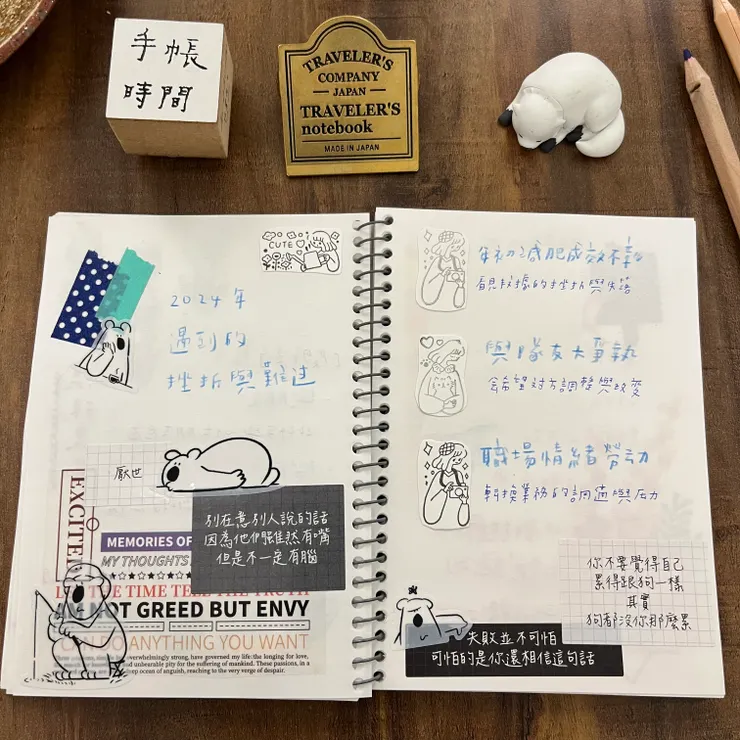 手帳
時間
TRAVELER'S
COMPANY
JAPAN
TRAVELER'S
notebook
MADE IN JAPAN
CUTE
2024年
遇到的
挫折與難过
厭世
別在意別人說的話
因為他們雖然有嘴
但是不一定有腦
EXCITED
MEMORIES OF
MY THOUGHTS
THE TIME TELL THE TRUTH
NOT GREED BUT ENVY
CAN DO ANYTHING YOU WANT
overwhelmingly strong, have governed my life: the longing for love,
and unbearable pity for the suffering of mankind. These passions, in a
deep ocean of anguish, reaching to the very verge of despair.
年初減肥成效不幸
看見數據的挫折與失落
與隊友大爭執
會希望对方調整與改变
職場情緒勞动
轉換業務的調適與压力
你不要覺得自己
累得跟狗一樣
其實
狗都沒你那麼累
失敗並不可怕
可怕的是你還相信這句話